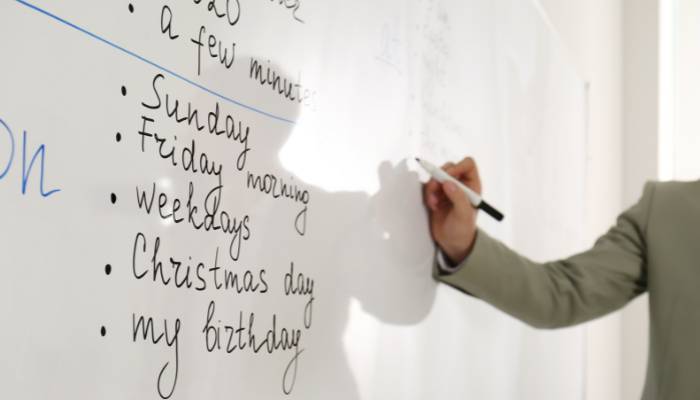 a few minutes
Sunday
on
Friday morning
weekdays
Christmas day
my birthday